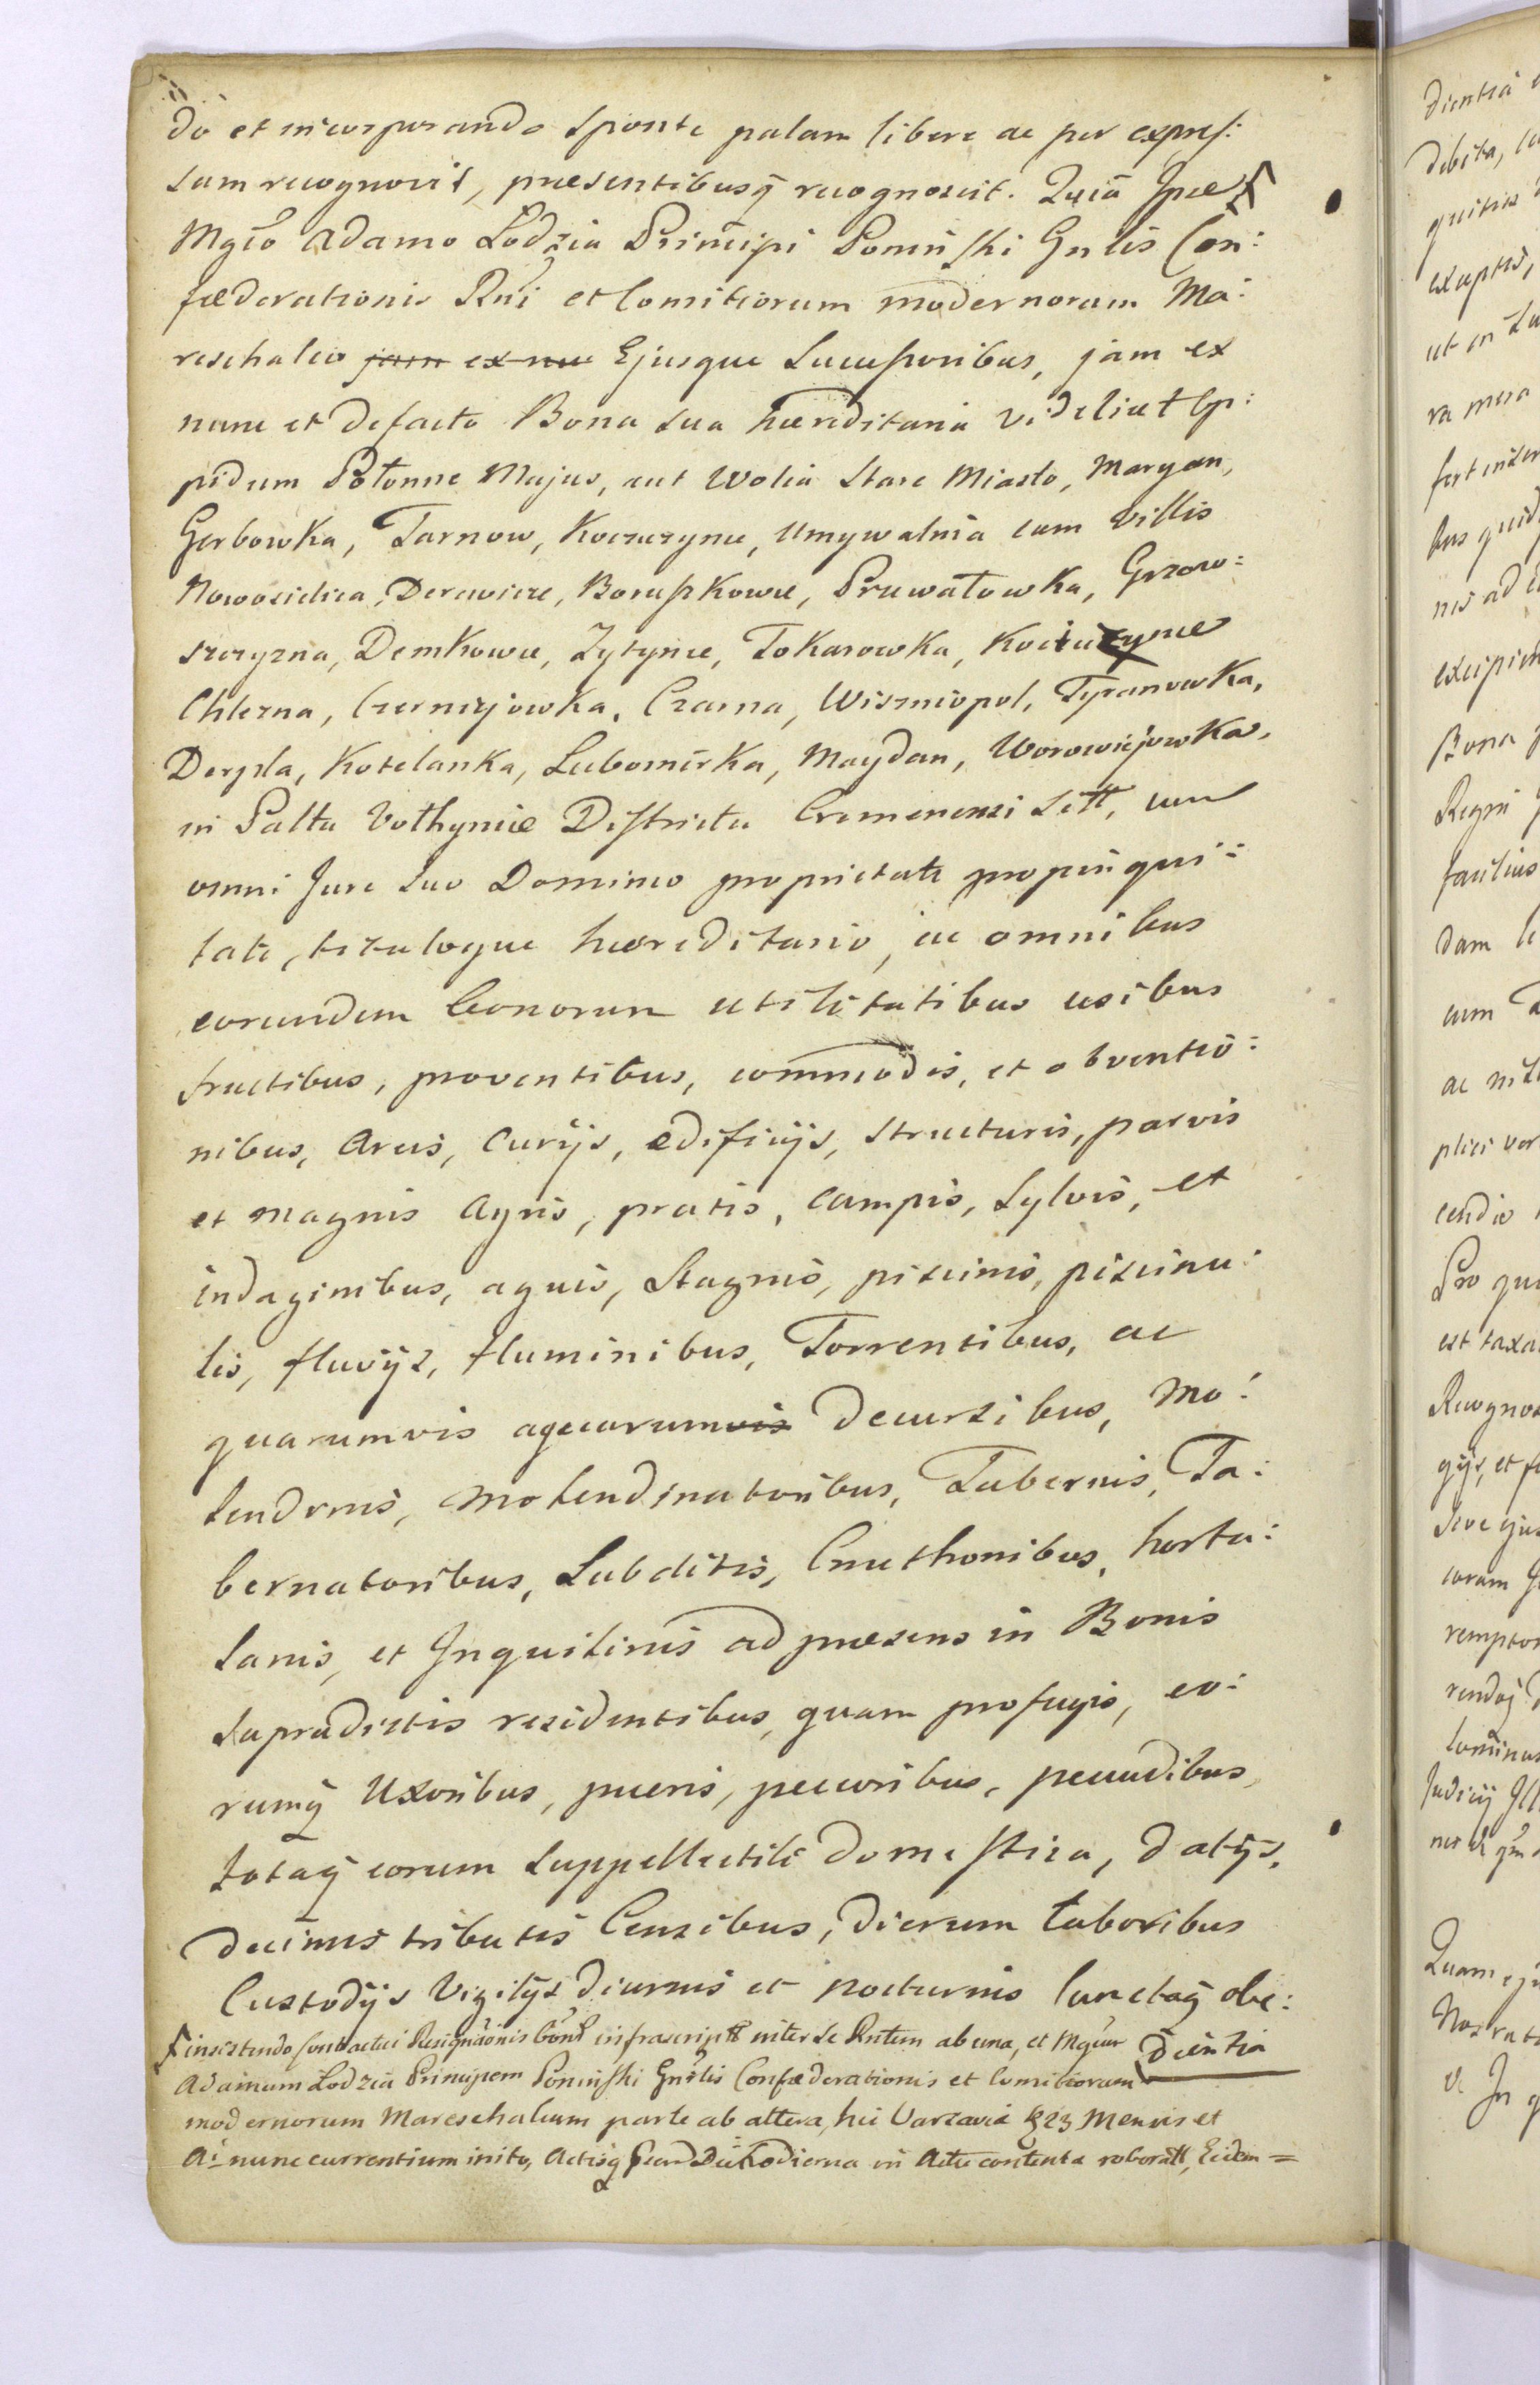 do et incorporando sponte palam libere ac per expres:
sum recognovit, praesentibusq recognoscit. Quia Ipse
Mgco Adamo Lodzia Principi Poninski Gnlis Con:
faederationis Rni et Comitiorum modernorum Ma:
reschalco jam ex nu Ejusque Successoribus, jam ex
nunc et de facto Bona sua haereditaria videlicet Op:
pidum Połonne Majus, aut Wolia Stare Miasto, Maryan,
Gerbowka, Tarnow, Koczuzynce, Umywalnia cum Villis
Nowosielica, Derewicze, Boruszkowce, Pruwałowka, Grzow:
szczyzna, Demkowce, Zytynce, Tokarowka,
Chlezna, Czerniejowka, Czarna, Wiszniopol, Tyranowka,
Derpla, Kotelanka, Lubomirka, Maydan, Worowiejowka,
in Palttu Volhyniae Districtu Cremenensi sitt, cum
omni Jure suo Dominio proprietate propinqui:
tate, tituloque haereditario, ac omnibus
eorundem bonorum utilitatibus usibus
fructibus, proventibus, commodis, et obventio:
nibus, Areis, Curijs, edificijs, structuris, parvis
et magnis Agris, pratis, campis, Sylvis, et
indaginibus, aquis, Stagnis, piscinis, piscinu:
lis, fluvijs, fluminibus, Torrentibus, ac
quarumvis aquarumvis decursibus, Mo:
lendinis, Molendinatoribus, Tabernis, Ta:
bernatoribus, Subditis, Cmethonibus, hortu:
lanis, et Inquilinis ad praesens in Bonis
supradictis residentibus, quam profugis, eo:
rumq Uxoribus, pueris, pecoribus, pecudibus,
totaq eorum suppellectili domestica, datijs,
decimis tributis Censibus, dierum laboribus
Custodijs Vigilijs diurnis et nocturnis Cunctaq obe:
dientia
insistendo Contractui Resignationis bonor infrascriptt inter se Rntem ab una, et Mgcum
Adamum Lodzia Principem Poninski Gnrlis Confaederationis et Comitiorum
modernorum Mareschalcum parte ab altera, hic Varsavia 23 Mensis et
A. nunc currentium inito, Actisq hodierna in Actu contenta roboratt, Eidem =